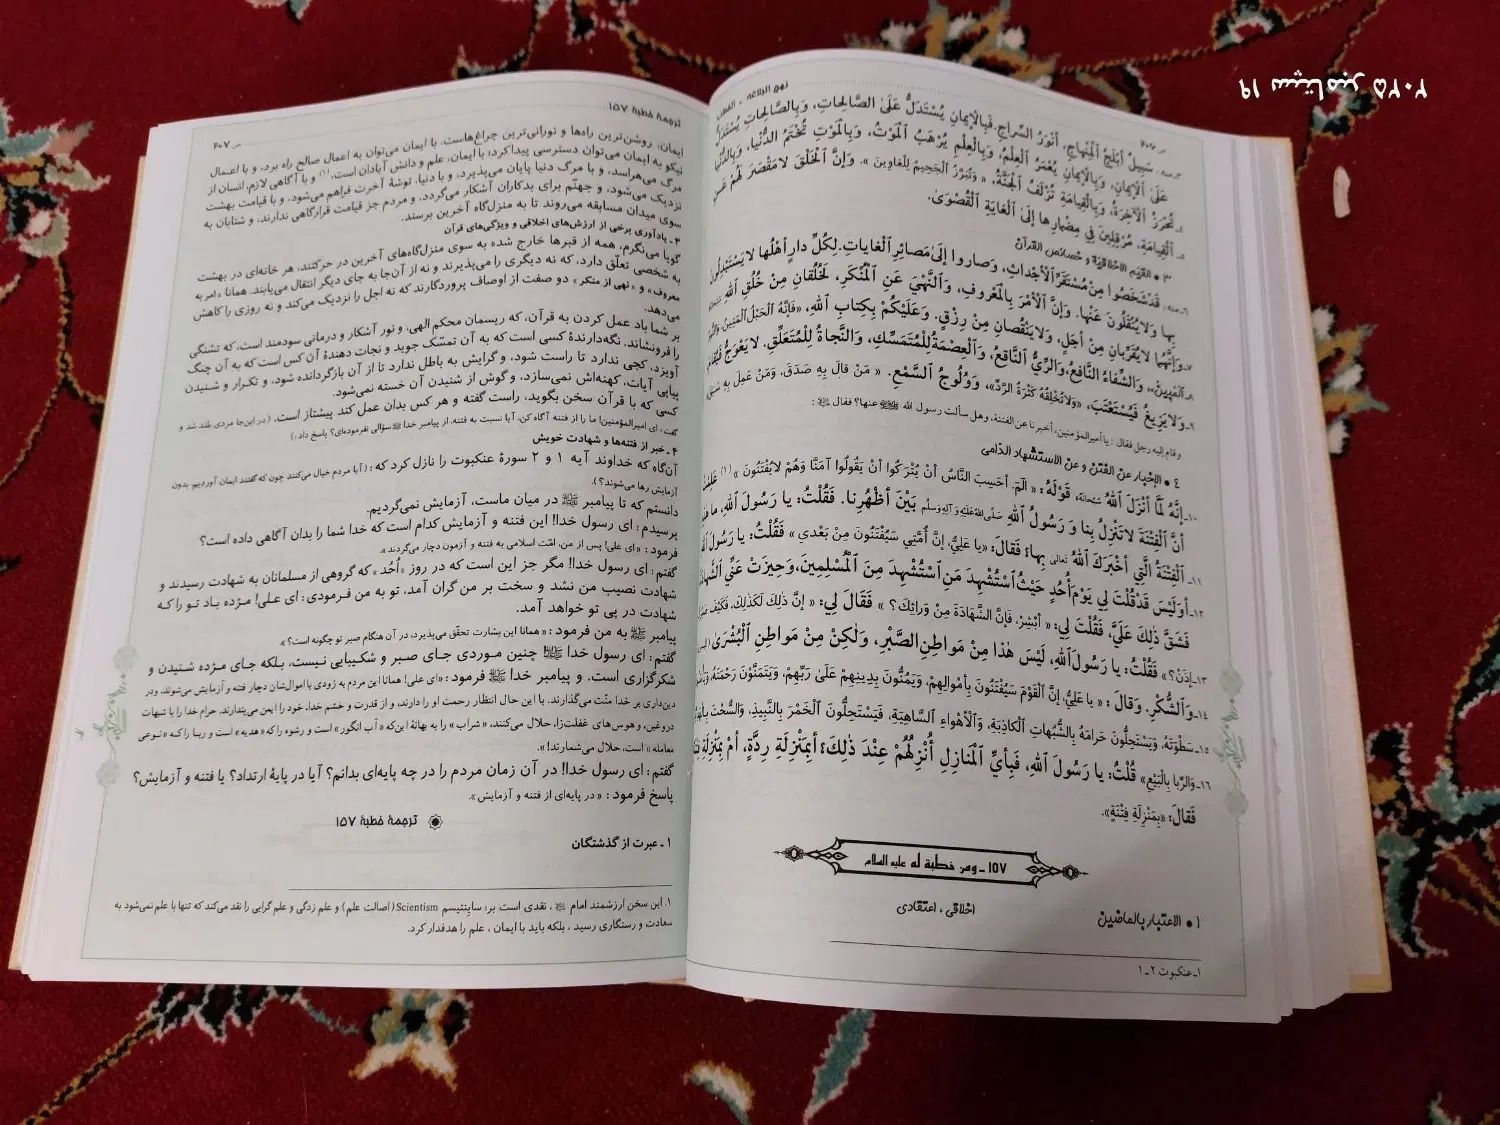 نهج البلاغه - الخطب
سَبِيلٌ أَبْلَجُ ٱلْمِنْهَاجِ، أَنْوَرُ السِّرَاجِ. فَبِالْإِيمَانِ يُسْتَدَلُّ عَلَىٰ الصَّالِحَاتِ، وَبِالصَّالِحَاتِ يُسْتَدَلُّ
عَلَىٰ ٱلْإِيمَانِ، وَبِالْإِيمَانِ يُعْمَرُ ٱلْعِلْمُ، وَبِالْعِلْمِ يُرْهَبُ ٱلْمَوْتُ، وَبِالْمَوْتِ تُخْتَمُ الدُّنْيَا، وَبِالدُّنْيَا
تُحْرَزُ ٱلْآخِرَةُ، وَبِالْقِيَامَةِ تُزْلَفُ ٱلْجَنَّةُ، « وَتُبَرَّزُ ٱلْجَحِيمُ لِلْغَاوِينَ ». وَإِنَّ ٱلْخَلْقَ لَا مَقْصَرَ لَهُمْ عَنِ
ٱلْقِيَامَةِ، مُرْقِلِينَ فِي مِضْمَارِهَا إِلَىٰ ٱلْغَايَةِ ٱلْقُصْوَىٰ.
٣ ● القيم الاخلاقية و خصائص القرآن
قَدْ شَخَصُوا مِنْ مُسْتَقَرِّ ٱلْأَجْدَاثِ، وَصَارُوا إِلَىٰ مَصَائِرِ ٱلْغَايَاتِ. لِكُلِّ دَارٍ أَهْلُهَا لَا يَسْتَبْدِلُونَ
بِهَا وَلَا يُنْقَلُونَ عَنْهَا. وَإِنَّ ٱلْأَمْرَ بِالْمَعْرُوفِ، وَٱلنَّهْيَ عَنِ ٱلْمُنْكَرِ، لَخُلُقَانِ مِنْ خُلُقِ ٱللهِ سُبْحَانَهُ
٧ـ وَإِنَّهُمَا لَا يُقَرِّبَانِ مِنْ أَجَلٍ، وَلَا يَنْقُصَانِ مِنْ رِزْقٍ. وَعَلَيْكُمْ بِكِتَابِ ٱللهِ، «فَإِنَّهُ ٱلْحَبْلُ ٱلْمَتِينُ، وَٱلنُّورُ
٨ـ ٱلْمُبِينُ»، وَٱلشِّفَاءُ ٱلنَّافِعُ، وَٱلرِّيُّ ٱلنَّاقِعُ، وَٱلْعِصْمَةُ لِلْمُتَمَسِّكِ، وَٱلنَّجَاةُ لِلْمُتَعَلِّقِ. لَا يَعْوَجُّ فَيُقَامَ
٩ـ وَلَا يَزِيغُ فَيُسْتَعْتَبَ، «وَلَا تُخْلِقُهُ كَثْرَةُ الرَّدِّ»، وَوُلُوجُ ٱلسَّمْعِ. « مَنْ قَالَ بِهِ صَدَقَ، وَمَنْ عَمِلَ بِهِ سَبَقَ
وقام إليه رجل فقال : يا أمير المؤمنين، أخبرنا عن الفتنة، وهل سألت رسول الله ﷺ عنها؟ فقال :
٤ ● الإخبار عن الفتن و عن الاستشهاد الدّامى
١٠ـ إِنَّهُ لَمَّا أَنْزَلَ ٱللهُ سُبْحَانَهُ، قَوْلَهُ: « الٓمٓ. أَحَسِبَ النَّاسُ أَنْ يُتْرَكُوا أَنْ يَقُولُوا آمَنَّا وَهُمْ لَا يُفْتَنُونَ » (١) عَلِمْتُ
أَنَّ ٱلْفِتْنَةَ لَا تَنْزِلُ بِنَا وَ رَسُولُ ٱللهِ صَلَّى اللهُ عَلَيْهِ وَآلِهِ وَسَلَّمَ بَيْنَ أَظْهُرِنَا. فَقُلْتُ: يَا رَسُولَ ٱللهِ، مَا هٰذِهِ
١١ـ ٱلْفِتْنَةُ الَّتِي أَخْبَرَكَ ٱللهُ تَعَالَىٰ بِهَا؟ فَقَالَ: «يَا عَلِيُّ، إِنَّ أُمَّتِي سَيُفْتَنُونَ مِنْ بَعْدِي » فَقُلْتُ: يَا رَسُولَ ٱللهِ
١٢ـ أَوَلَيْسَ قَدْ قُلْتَ لِي يَوْمَ أُحُدٍ حَيْثُ ٱسْتُشْهِدَ مَنِ ٱسْتُشْهِدَ مِنَ ٱلْمُسْلِمِينَ، وَحِيزَتْ عَنِّي ٱلشَّهَادَةُ
فَشَقَّ ذٰلِكَ عَلَيَّ، فَقُلْتَ لِي: « أَبْشِرْ، فَإِنَّ الشَّهَادَةَ مِنْ وَرَائِكَ؟ » فَقَالَ لِي: « إِنَّ ذٰلِكَ لَكَذٰلِكَ، فَكَيْفَ صَبْرُكَ
١٣ـ إِذَنْ؟ » فَقُلْتُ: يَا رَسُولَ ٱللهِ، لَيْسَ هٰذَا مِنْ مَوَاطِنِ الصَّبْرِ، وَلٰكِنْ مِنْ مَوَاطِنِ ٱلْبُشْرَىٰ
١٤ـ وَٱلشُّكْرِ. وَقَالَ : « يَا عَلِيُّ، إِنَّ ٱلْقَوْمَ سَيُفْتَنُونَ بِأَمْوَالِهِمْ، وَيَمُنُّونَ بِدِينِهِمْ عَلَىٰ رَبِّهِمْ، وَيَتَمَنَّوْنَ رَحْمَتَهُ،
١٥ـ سَطْوَتَهُ، وَيَسْتَحِلُّونَ حَرَامَهُ بِالشُّبُهَاتِ ٱلْكَاذِبَةِ، وَٱلْأَهْوَاءِ ٱلسَّاهِيَةِ، فَيَسْتَحِلُّونَ ٱلْخَمْرَ بِالنَّبِيذِ، وَٱلسُّحْتَ
١٦ـ وَالرِّبَا بِالْبَيْعِ» قُلْتُ: يَا رَسُولَ ٱللهِ، فَبِأَيِّ ٱلْمَنَازِلِ أُنْزِلُهُمْ عِنْدَ ذٰلِكَ؟ أَبِمَنْزِلَةِ رِدَّةٍ، أَمْ بِمَنْزِلَةِ
فَقَالَ: «بِمَنْزِلَةِ فِتْنَةٍ».
١٥٧ ـ ومن خطبة له عليه السلام
اخلاقی ، اعتقادی
١ ● الاعتبار بالماضين
١ـ عنكبوت ٢ـ١
ترجمهٔ خطبهٔ ۱۵۷
ص ۲۰۷
ایمان، روشن‌ترین راه‌ها و نورانی‌ترین چراغ‌هاست، با ایمان می‌توان به اعمال صالح راه برد، و با اعمال
نیکو به ایمان می‌توان دسترسی پیدا کرد؛ با ایمان، علم و دانش آبادان است، (۱) و با آگاهی لازم، انسان از
مرگ می‌هراسد، و با مرگ دنیا پایان می‌پذیرد، و با دنیا، توشهٔ آخرت فراهم می‌شود، و با قیامت بهشت
نزدیک می‌شود، و جهنّم برای بدکاران آشکار می‌گردد، و مردم جز قیامت قرارگاهی ندارند، و شتابان به
سوی میدان مسابقه می‌روند تا به منزلگاه آخرین برسند.
۳ ـ یادآوری برخی از ارزش‌های اخلاقی و ویژگی‌های قرآن
گویا می‌نگرم، همه از قبرها خارج شده به سوی منزل‌گاه‌های آخرین در حرکتند، هر خانه‌ای در بهشت
به شخصی تعلّق دارد، که نه دیگری را می‌پذیرند و نه از آن‌جا به جای دیگر انتقال می‌یابند. همانا «امر به
معروف» و «نهی از منکر» دو صفت از اوصاف پروردگارند که نه اجل را نزدیک می‌کند و نه روزی را کاهش
می‌دهد.
بر شما باد عمل کردن به قرآن، که ریسمان محکم الهی، و نور آشکار و درمانی سودمند است، که تشنگی
را فرونشاند، نگه‌دارندهٔ کسی است که به آن تمسّک جوید و نجات دهندهٔ آن کس است که به آن چنگ
آویزد، کجی ندارد تا راست شود، و گرایش به باطل ندارد تا از آن بازگردانده شود، و تکرار و شنیدن
پیاپی آیات، کهنه‌اش نمی‌سازد، و گوش از شنیدن آن خسته نمی‌شود.
کسی که با قرآن سخن بگوید، راست گفته و هر کس بدان عمل کند پیشتاز است. (در این‌جا مردی بلند شد و
گفت: ای امیرالمؤمنین! ما را از فتنه آگاه کن، آیا نسبت به فتنه، از پیامبر خدا ﷺ سؤالی نفرموده‌ای؟ پاسخ داد:)
۴ ـ خبر از فتنه‌ها و شهادت خویش
آن‌گاه که خداوند آیه ۱ و ۲ سورهٔ عنکبوت را نازل کرد که: (آیا مردم خیال می‌کنند چون که گفتند ایمان آوردیم، بدون
آزمایش رها می‌شوند؟).
دانستم که تا پیامبر ﷺ در میان ماست، آزمایش نمی‌گردیم.
پرسیدم: ای رسول خدا! این فتنه و آزمایش کدام است که خدا شما را بدان آگاهی داده است؟
فرمود: «ای علی! پس از من، امّت اسلامی به فتنه و آزمون دچار می‌گردند».
گفتم: ای رسول خدا! مگر جز این است که در روز «اُحُد» که گروهی از مسلمانان به شهادت رسیدند و
شهادت نصیب من نشد و سخت بر من گران آمد، تو به من فرمودی: ای علی! مژده باد تو را که
شهادت در پی تو خواهد آمد.
پیامبر ﷺ به من فرمود: «همانا این بشارت تحقّق می‌پذیرد، در آن هنگام صبر تو چگونه است؟».
گفتم: ای رسول خدا ﷺ! چنین موردی جای صبر و شکیبایی نیست، بلکه جای مژده شنیدن و
شکرگزاری است، و پیامبر خدا ﷺ فرمود: «ای علی! همانا این مردم به زودی با اموال‌شان دچار فتنه و آزمایش می‌شوند، و در
دین‌داری بر خدا منّت می‌گذارند، با این حال انتظار رحمت او را دارند، و از قدرت و خشم خدا، خود را ایمن می‌پندارند، حرام خدا را با شبهات
دروغین، و هوس‌های غفلت‌زا، حلال می‌کنند، «شراب» را به بهانهٔ این‌که «آب انگور» است و رشوه را که «هدیه» است و ربا را که «نوعی
معامله» است، حلال می‌شمارند!».
گفتم: ای رسول خدا! در آن زمان مردم را در چه پایه‌ای بدانم؟ آیا در پایهٔ ارتداد؟ یا فتنه و آزمایش؟
پاسخ فرمود: «در پایه‌ای از فتنه و آزمایش».
ترجمهٔ خطبهٔ ۱۵۷
۱ ـ عبرت از گذشتگان
۱. این سخن ارزشمند امام، نقدی است بر: ساینتیسم Scientism (اصالت علم) و علم زدگی و علم گرایی را نقد می‌کند که تنها با علم نمی‌شود به
سعادت و رستگاری رسید ، بلکه باید با ایمان ، علم را هدفدار کرد.
١٩ سپتامبر ٢٠٢٥